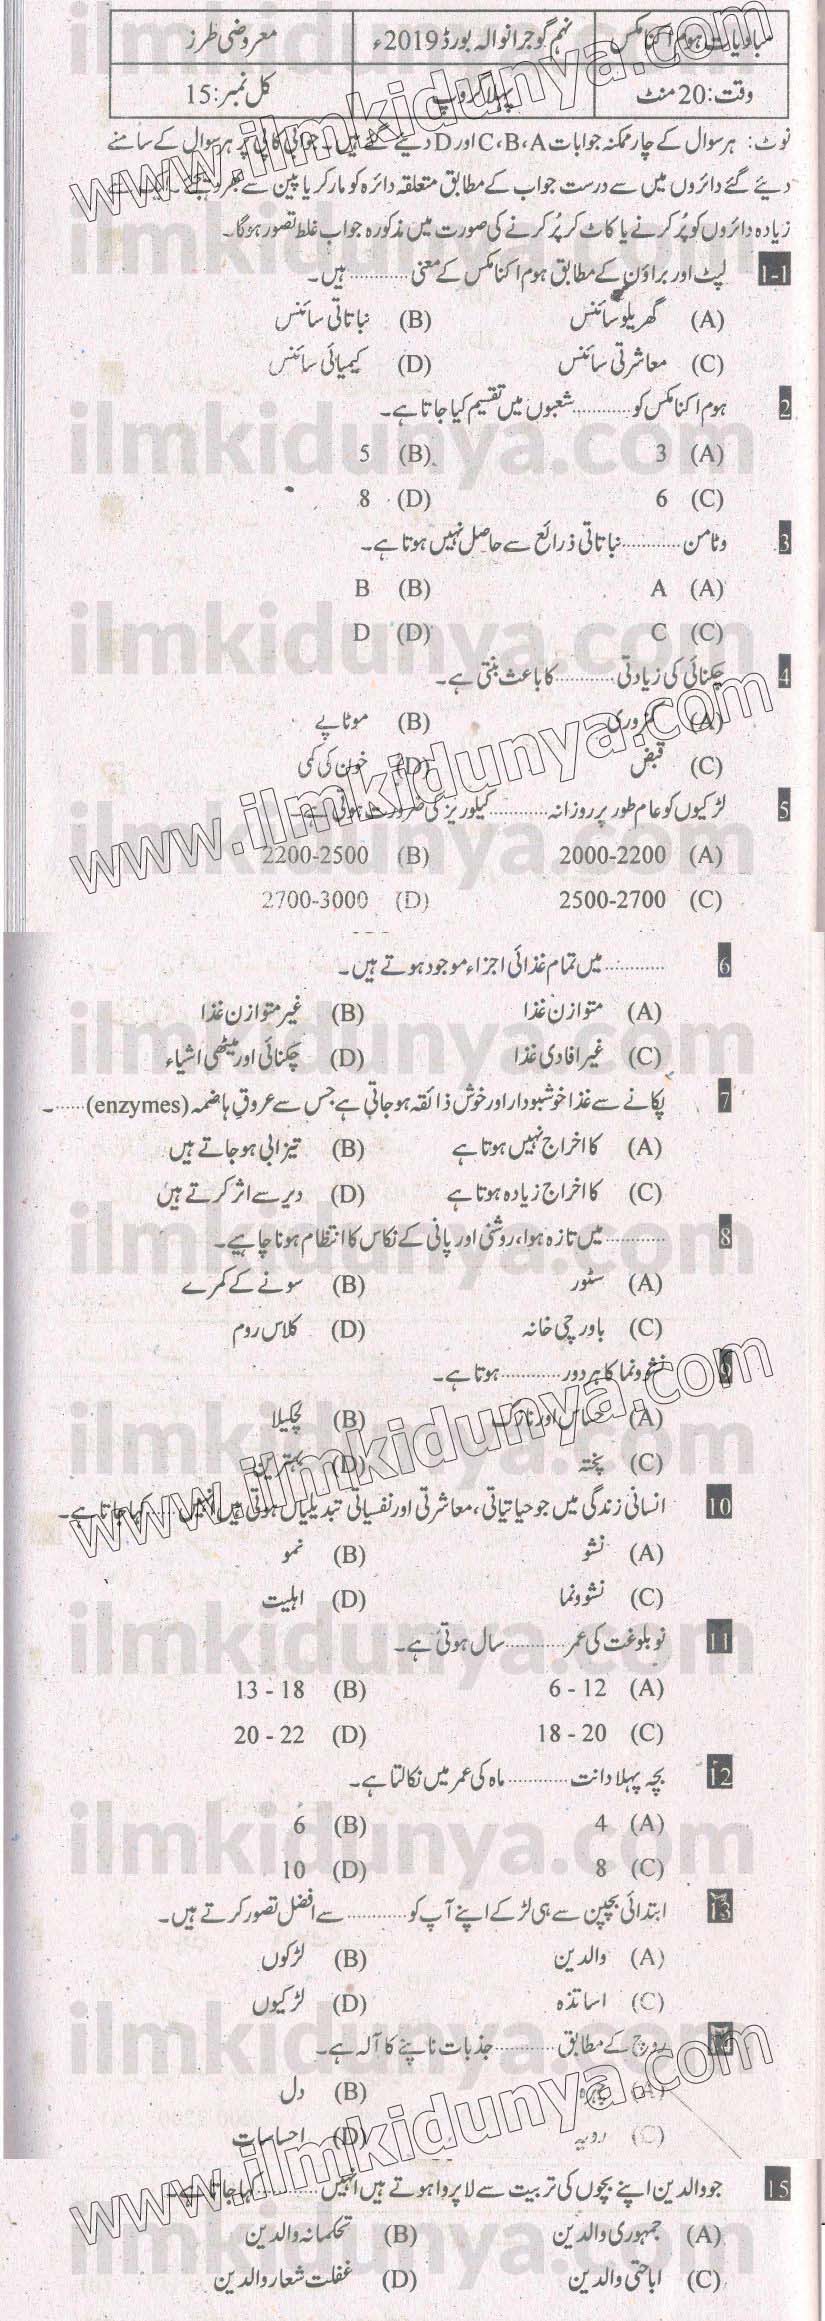 مبادیات ہوم اکنامکس نہم گوجرانوالہ بورڈ 2019ء معروضی طرز
وقت: 20 منٹ پہلا گروپ کل نمبر: 15
نوٹ: ہر سوال کے چار ممکنہ جوابات C، B، A اور D دیئے گئے ہیں۔ جوابی کاپی پر ہر سوال کے سامنے
دیئے گئے دائروں میں سے درست جواب کے مطابق متعلقہ دائرہ کو مارکر یا پین سے بھر دیجئے۔ ایک سے
زیادہ دائروں کو پُر کرنے یا کاٹ کر پُر کرنے کی صورت میں مذکورہ جواب غلط تصور ہوگا۔
1-1 لپٹ اور براؤن کے مطابق ہوم اکنامکس کے معنی ............ ہیں۔
(A) گھریلو سائنس (B) نباتاتی سائنس
(C) معاشرتی سائنس (D) کیمیائی سائنس
2 ہوم اکنامکس کو ............ شعبوں میں تقسیم کیا جاتا ہے۔
(A) 3 (B) 5
(C) 6 (D) 8
3 وٹامن ............ نباتاتی ذرائع سے حاصل نہیں ہوتا ہے۔
(A) A (B) B
(C) C (D) D
4 چکنائی کی زیادتی ............ کا باعث بنتی ہے۔
(A) کمزوری (B) موٹاپے
(C) قبض (D) خون کی کمی
5 لڑکیوں کو عام طور پر روزانہ ............ کیلوریز کی ضرورت ہوتی ہے۔
(A) 2000-2200 (B) 2200-2500
(C) 2500-2700 (D) 2700-3000
6 ............ میں تمام غذائی اجزاء موجود ہوتے ہیں۔
(A) متوازن غذا (B) غیر متوازن غذا
(C) غیر افادی غذا (D) چکنائی اور میٹھی اشیاء
7 پکانے سے غذا خوشبودار اور خوش ذائقہ ہو جاتی ہے جس سے عروقِ ہاضمہ (enzymes) ......۔
(A) کا اخراج نہیں ہوتا ہے (B) تیزابی ہو جاتے ہیں
(C) کا اخراج زیادہ ہوتا ہے (D) دیر سے اثر کرتے ہیں
8 ............ میں تازہ ہوا، روشنی اور پانی کے نکاس کا انتظام ہونا چاہیے۔
(A) سٹور (B) سونے کے کمرے
(C) باورچی خانہ (D) کلاس روم
9 نشوونما کا ہر دور ............ ہوتا ہے۔
(A) حساس اور نازک (B) لچکیلا
(C) پختہ (D) بہترین
10 انسانی زندگی میں جو حیاتیاتی، معاشرتی اور نفسیاتی تبدیلیاں ہوتی ہیں انہیں ...... کہا جاتا ہے۔
(A) نشو (B) نمو
(C) نشوونما (D) اہلیت
11 نوبلوغت کی عمر ............ سال ہوتی ہے۔
(A) 6 - 12 (B) 13 - 18
(C) 18 - 20 (D) 20 - 22
12 بچہ پہلا دانت ............ ماہ کی عمر میں نکالتا ہے۔
(A) 4 (B) 6
(C) 8 (D) 10
13 ابتدائی بچپن سے ہی لڑکے اپنے آپ کو ............ سے افضل تصور کرتے ہیں۔
(A) والدین (B) لڑکوں
(C) اساتذہ (D) لڑکیوں
14 روچ کے مطابق ............ جذبات ناپنے کا آلہ ہے۔
(A) چہرہ (B) دل
(C) رویہ (D) احساسات
15 جو والدین اپنے بچوں کی تربیت سے لاپروا ہوتے ہیں انہیں ............ کہا جاتا ہے۔
(A) جمہوری والدین (B) تحکمانہ والدین
(C) اباحتی والدین (D) غفلت شعار والدین